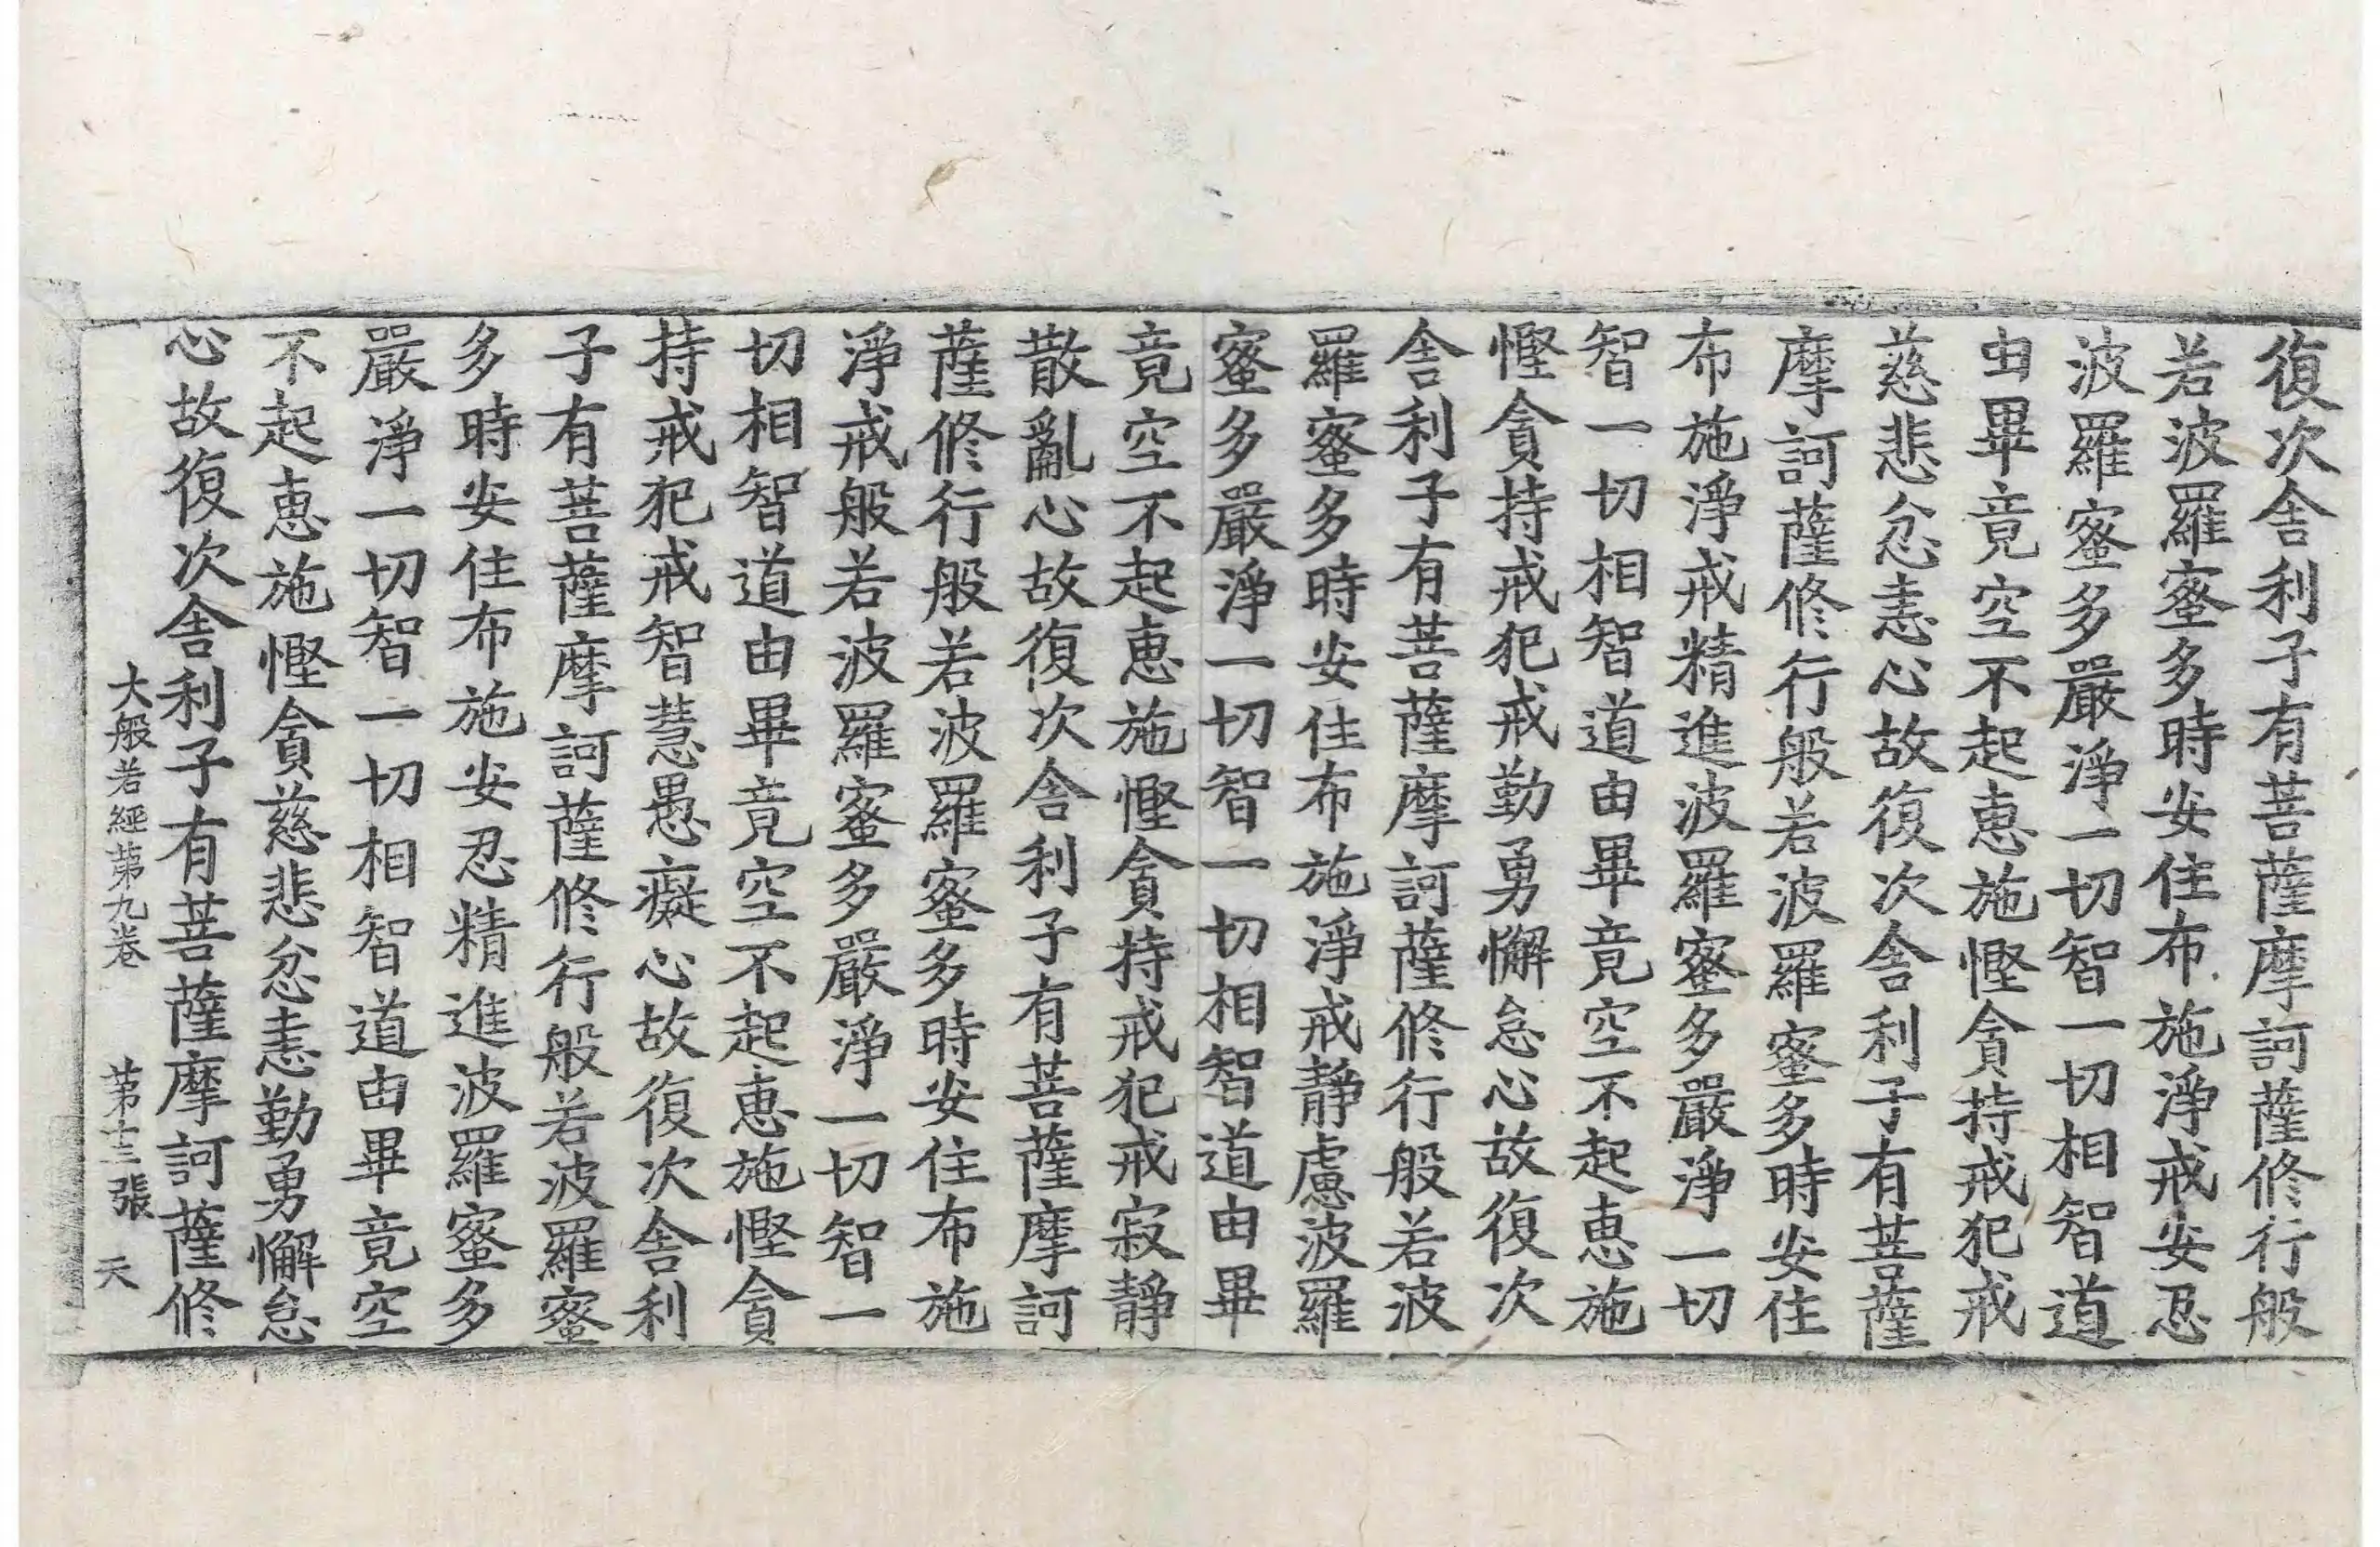 復次舍利子有菩薩摩訶薩修行般
若波羅蜜多時安住布施淨戒安忍
波羅蜜多嚴淨一切智一切相智道
由畢竟空不起恵施慳貪持戒犯戒
慈悲忿恚心故復次舍利子有菩薩
摩訶薩修行般若波羅蜜多時安住
布施淨戒精進波羅蜜多嚴淨一切
智一切相智道由畢竟空不起恵施
慳貪持戒犯戒勤勇懈怠心故復次
舍利子有菩薩摩訶薩修行般若波
羅蜜多時安住布施淨戒靜慮波羅
蜜多嚴淨一切智一切相智道由畢
竟空不起恵施慳貪持戒犯戒寂靜
散亂心故復次舍利子有菩薩摩訶
薩修行般若波羅蜜多時安住布施
淨戒般若波羅蜜多嚴淨一切智一
切相智道由畢竟空不起恵施慳貪
持戒犯戒智慧愚癡心故復次舍利
子有菩薩摩訶薩修行般若波羅蜜
多時安住布施安忍精進波羅蜜多
嚴淨一切智一切相智道由畢竟空
不起恵施慳貪慈悲忿恚勤勇懈怠
心故復次舍利子有菩薩摩訶薩修
大般若經第九卷 第十三張 天